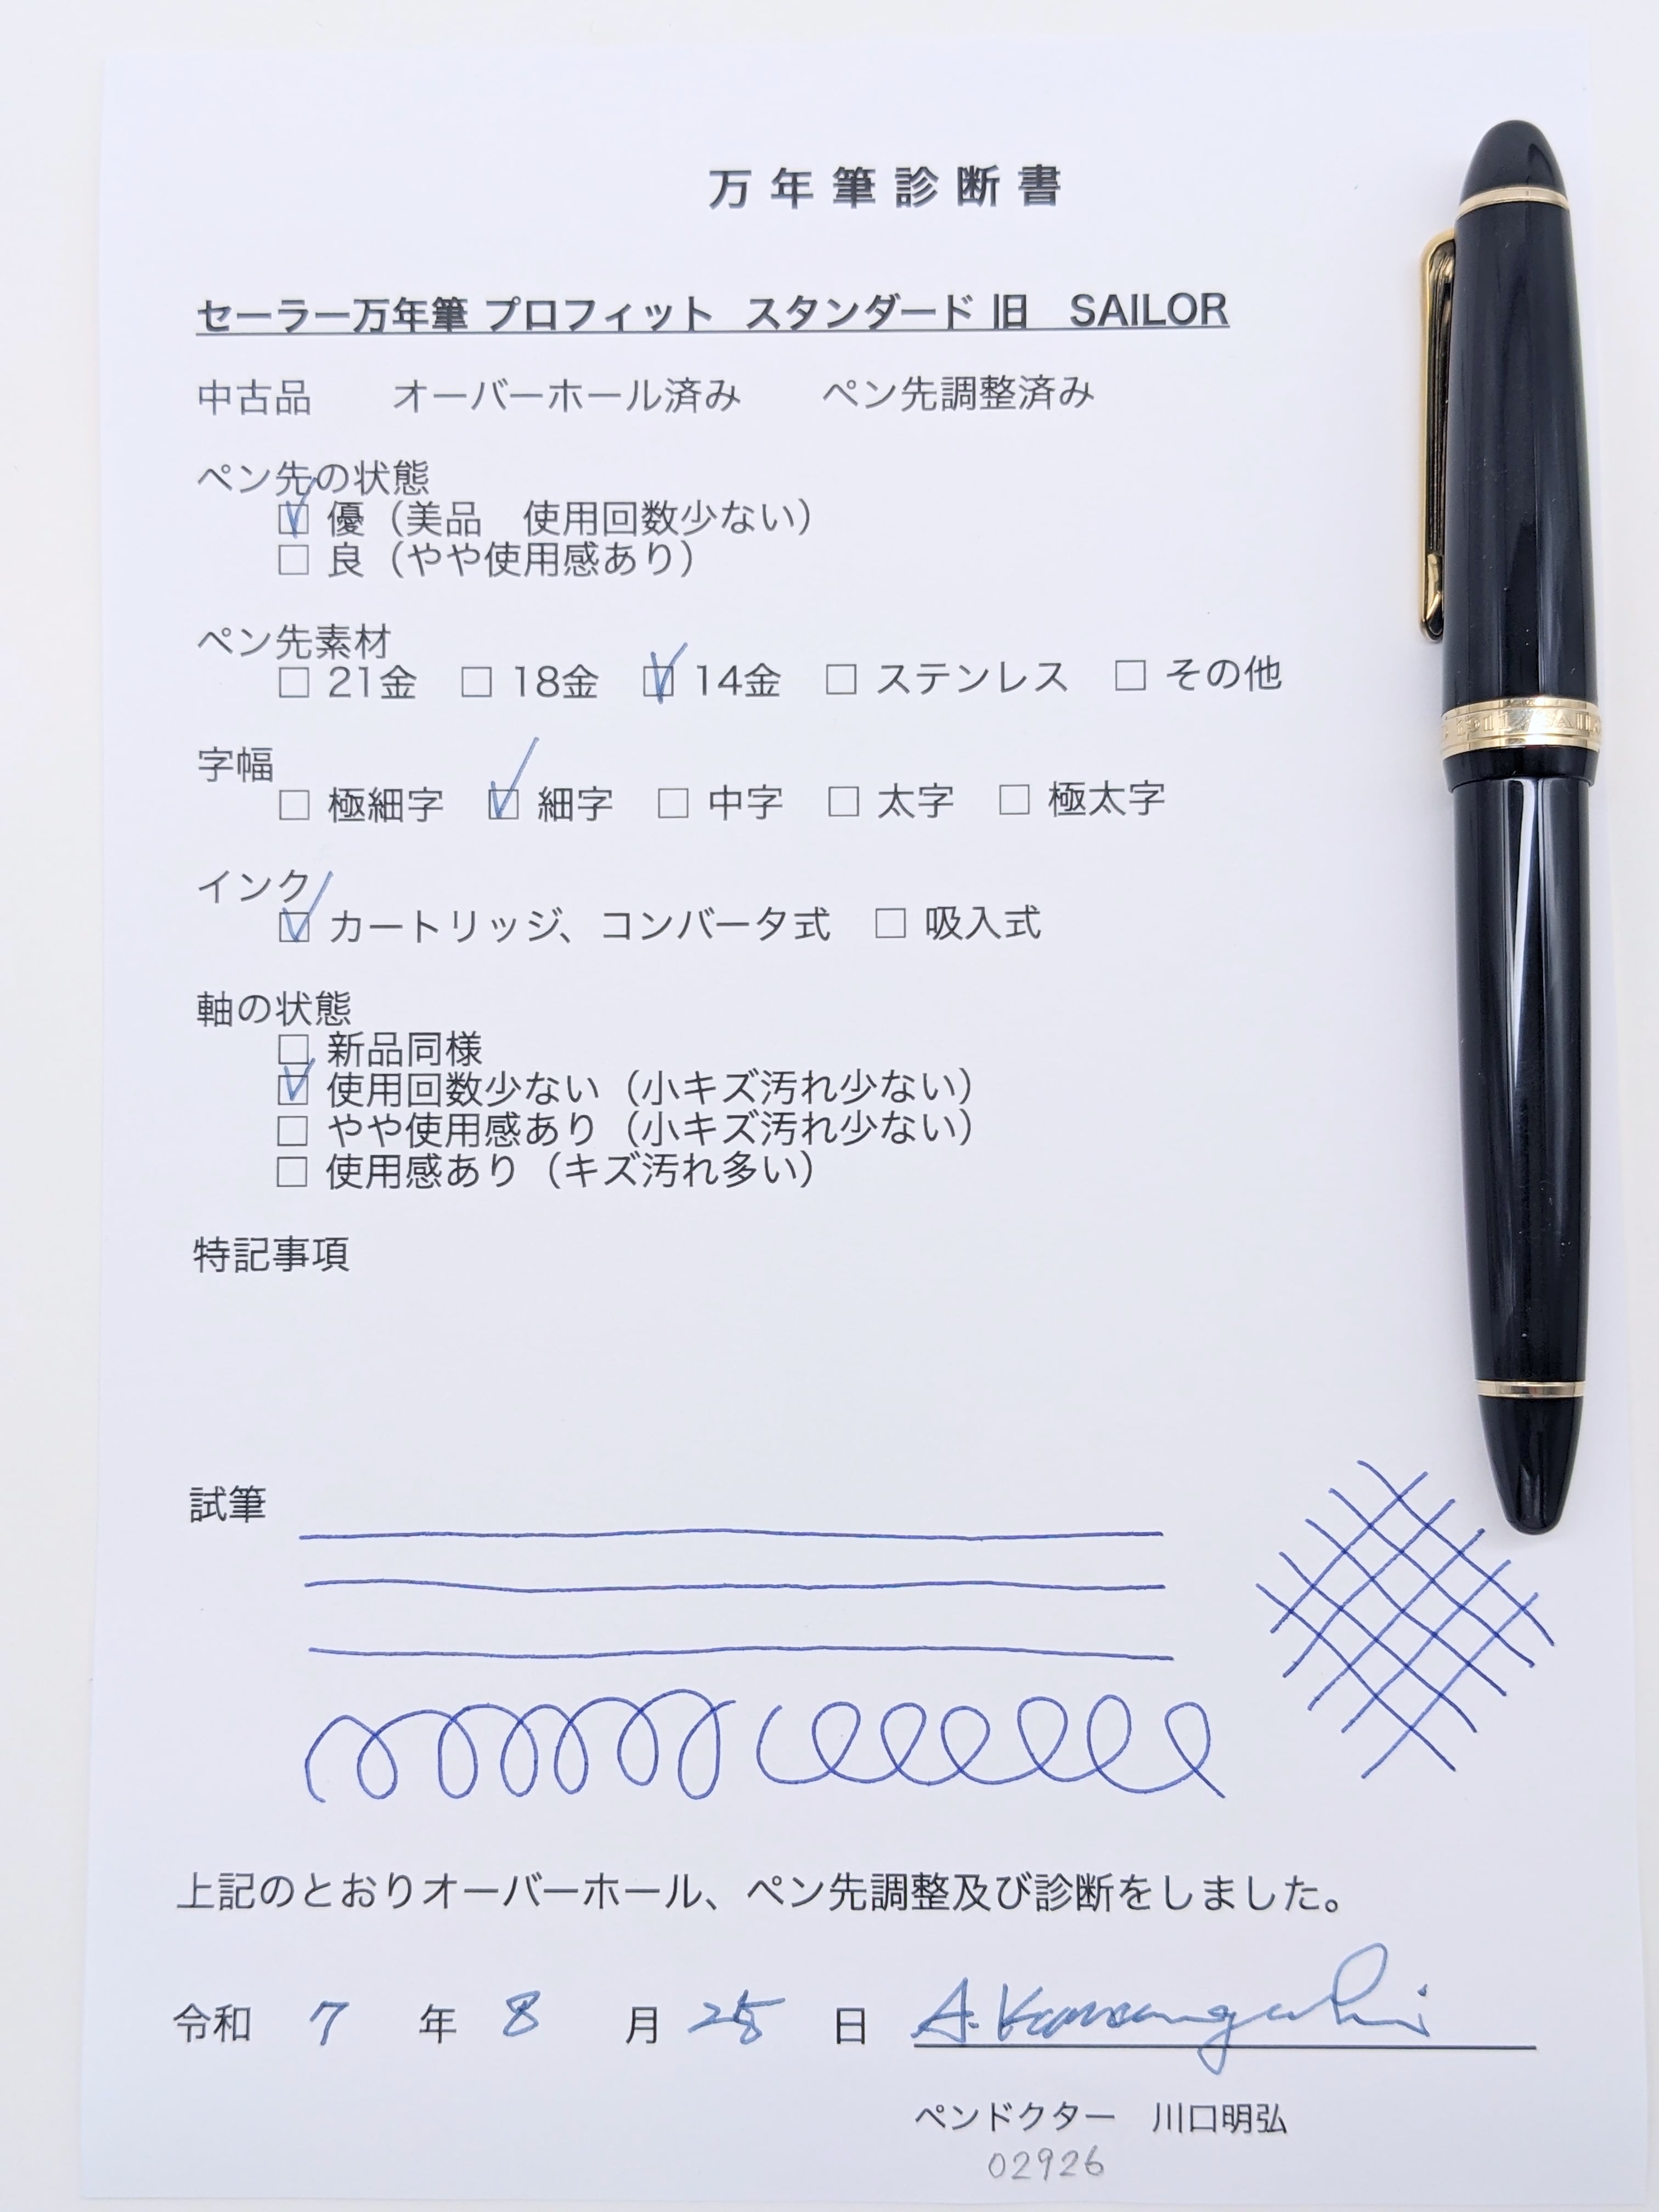 万年筆診断書
セーラー万年筆 プロフィット スタンダード 旧 SAILOR
中古品 オーバーホール済み ペン先調整済み
ペン先の状態
☑ 優（美品 使用回数少ない）
□ 良（やや使用感あり）
ペン先素材
□ 21金 □ 18金 ☑ 14金 □ ステンレス □ その他
字幅
□ 極細字 ☑ 細字 □ 中字 □ 太字 □ 極太字
インク
☑ カートリッジ、コンバータ式 □ 吸入式
軸の状態
□ 新品同様
☑ 使用回数少ない（小キズ汚れ少ない）
□ やや使用感あり（小キズ汚れ少ない）
□ 使用感あり（キズ汚れ多い）
特記事項
試筆
上記のとおりオーバーホール、ペン先調整及び診断をしました。
令和 7 年 8 月 日 A. Kawaguchi
ペンドクター 川口明弘
02926